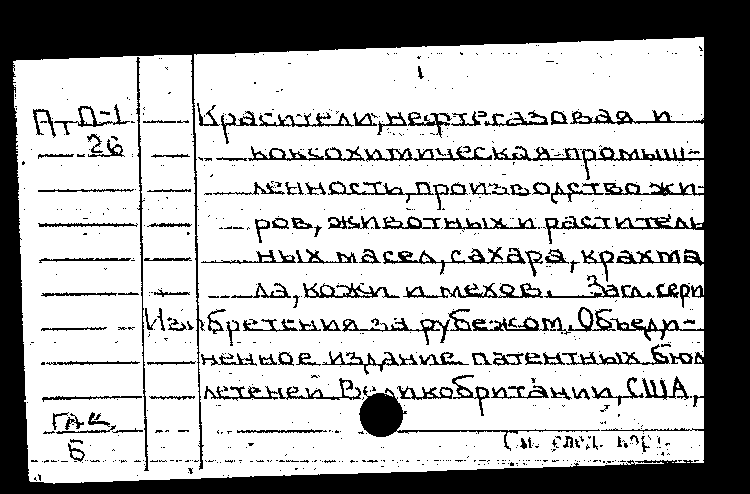 1
Пт П-1 Красители, нефтегазовая и
26
коксохимическая промыш-
ленность, производство жи-
ров, животных и раститель
ных масел, сахара, крахма
ла, кожи и мехов. Загл. сери
Изобретения за рубежом. Объеди-
ненное издание патентных бюл
летеней Великобритании, США,
ГАК
Б
См. след. карт.